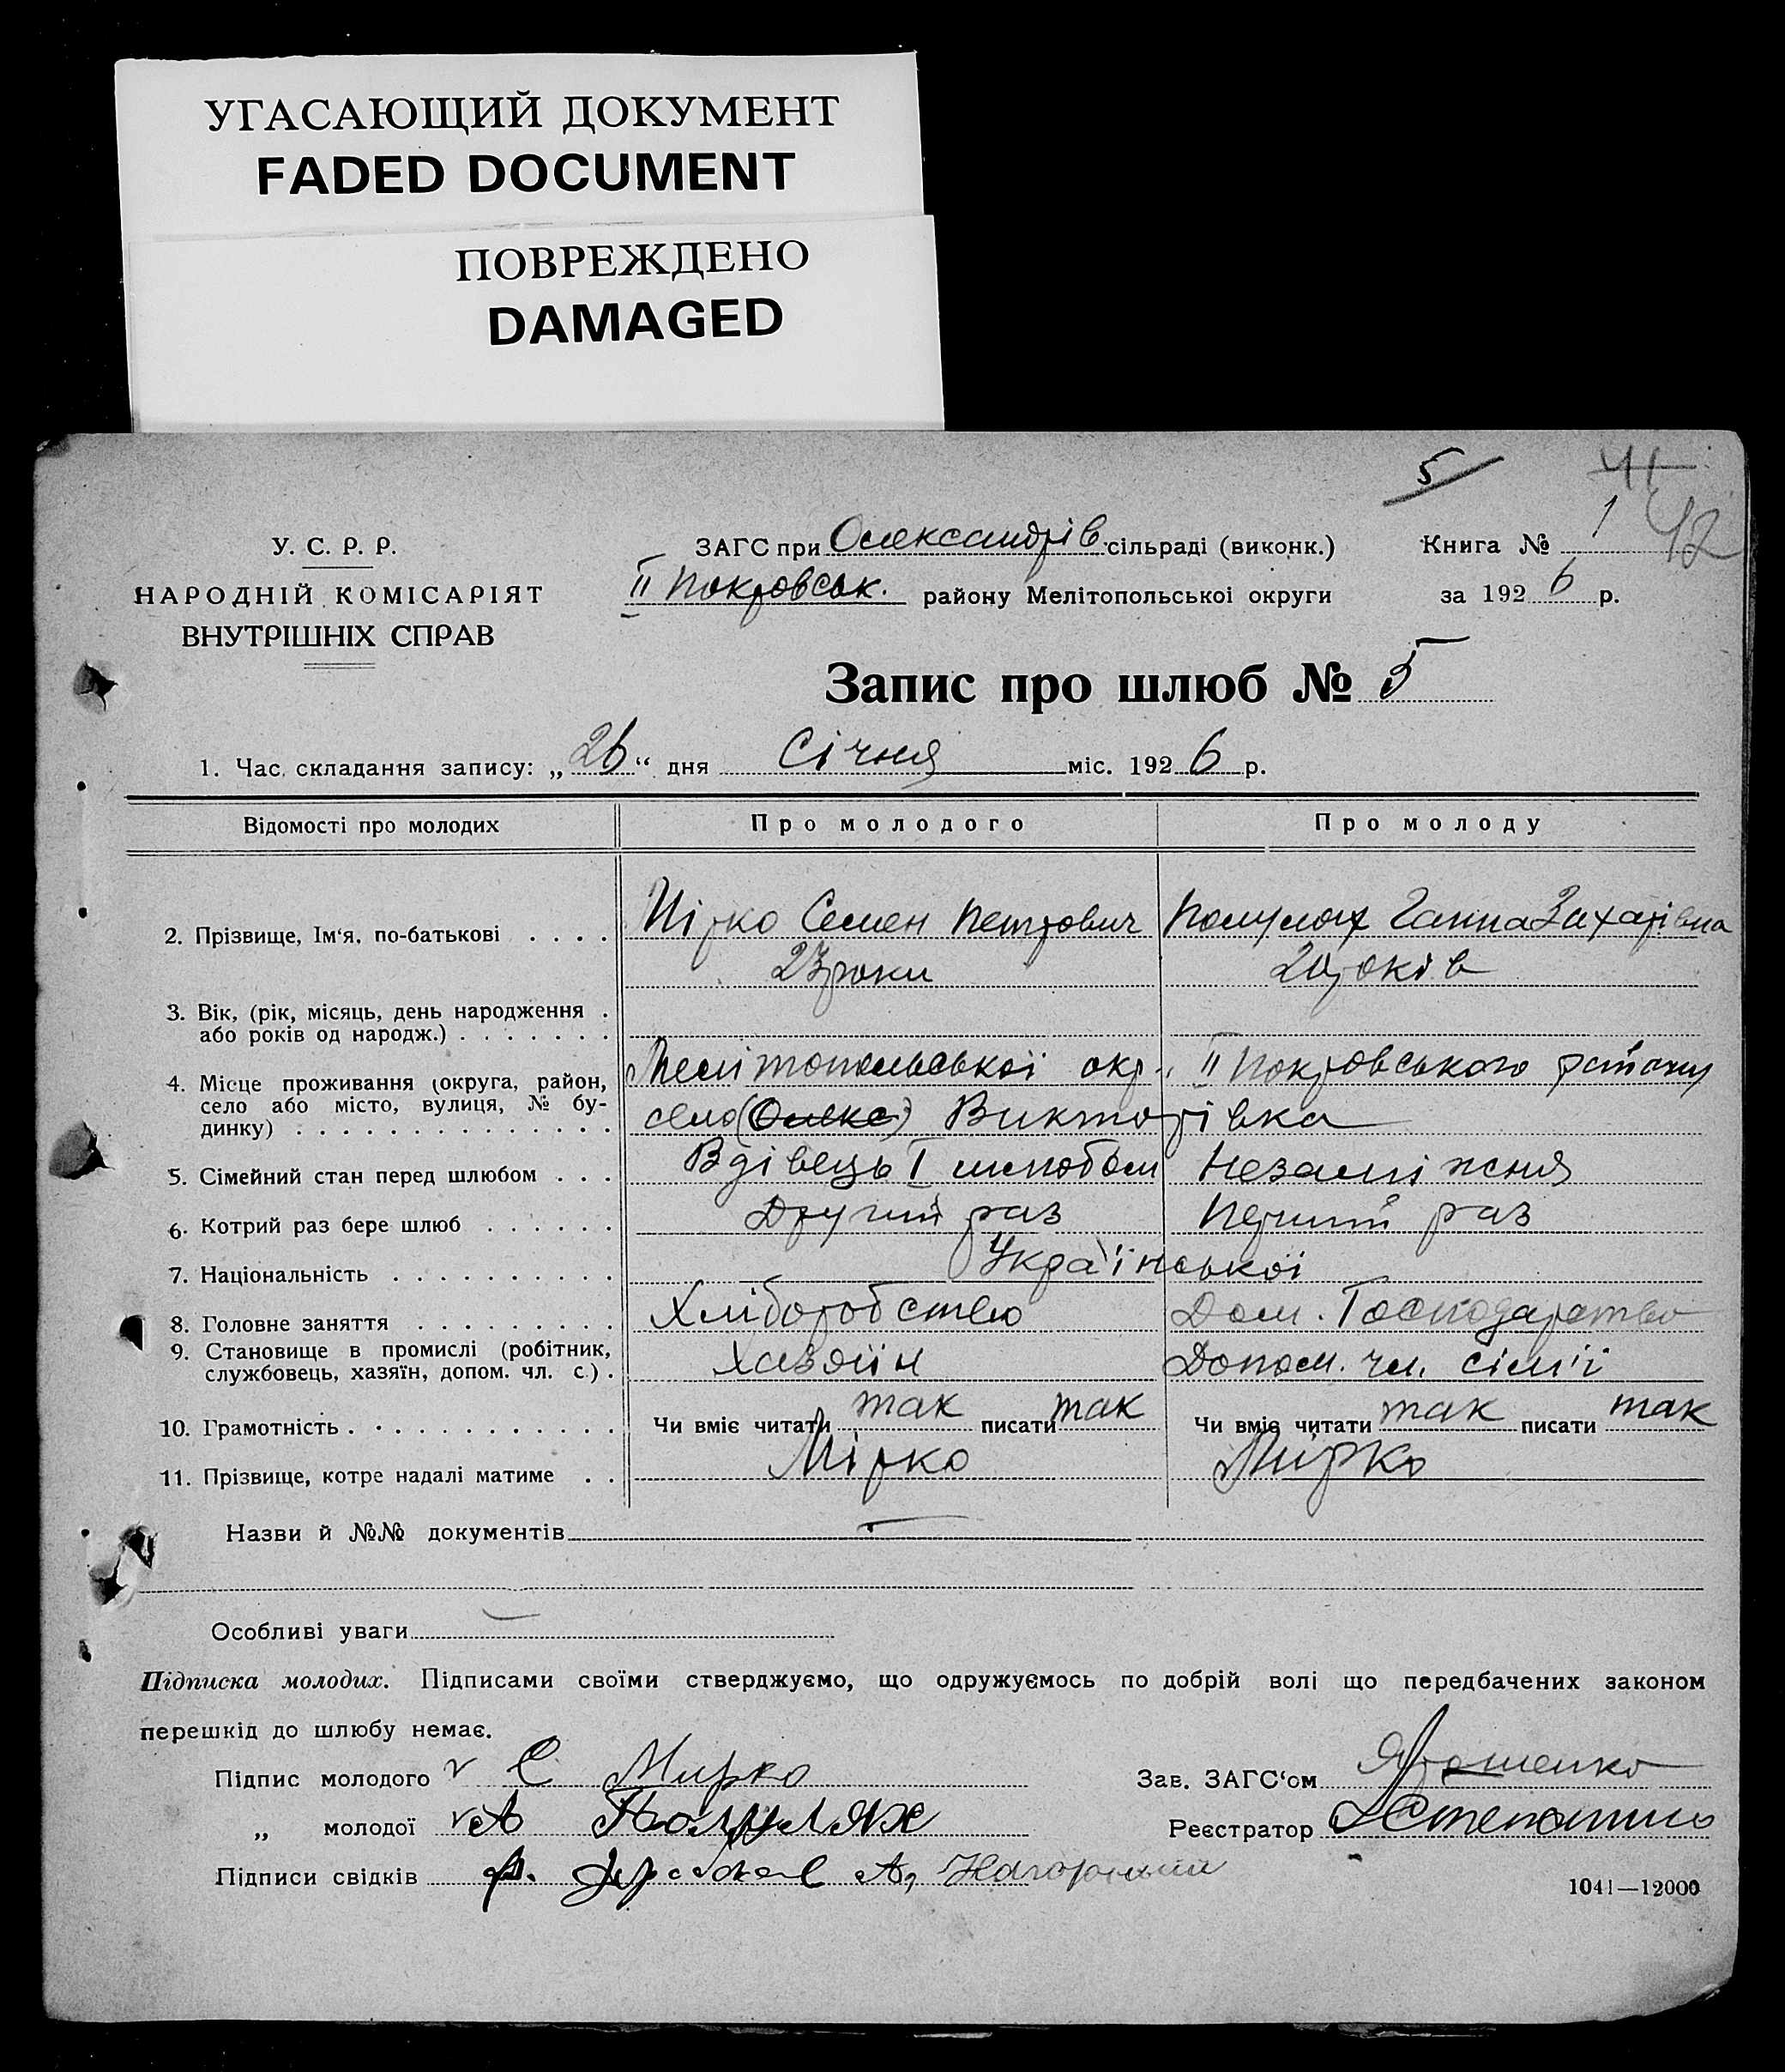 УГАСАЮЩИЙ ДОКУМЕНТ
FADED DOCUMENT
ПОВРЕЖДЕНО
DAMAGED
5 41
У. С. Р. Р.
НАРОДНІЙ КОМІСАРІЯТ
ВНУТРІШНІХ СПРАВ
ЗАГС при Олександрів. сільраді (виконк.) Книга № 1 42
II Покровськ. району Мелітопольської округи за 1926 р.
Запис про шлюб № 5
1. Час складання запису: „26“ дня Січня міс. 1926 р.
Відомості про молодих Про молодого Про молоду
2. Прізвище, Ім‘я, по-батькові . . . . Мірко Семен Петрович Полулях Ганна Захарівна
23 роки 20 років
3. Вік, (рік, місяць, день народження .
або років од народж.) . . . . . . .
4. Місце проживання (округа, район, Мелітопольської окр. II Покровського району
село або місто, вулиця, № бу-
динку) . . . . . . . . . . . . . . село (Олекс) Викторівка
5. Сімейний стан перед шлюбом . . . Вдівець I шлюбом Незаміжня
6. Котрий раз бере шлюб . . . . . . Другий раз Перший раз
7. Національність . . . . . . . . . . Української
8. Головне заняття . . . . . . . . . Хліборобство Дом. Господарство
9. Становище в промислі (робітник,
службовець, хазяїн, допом. чл. с.) . Хазяїн Допом. чл. сім'ї
10. Грамотність . . . . . . . . . . . . Чи вміє читати так писати так Чи вміє читати так писати так
11. Прізвище, котре надалі матиме . . Мірко Мирко
Назви й №№ документів
Особливі уваги
Підписка молодих. Підписами своїми стверджуємо, що одружуємось по добрій волі що передбачених законом
перешкід до шлюбу немає.
Підпис молодого С Мирко Зав. ЗАГС‘ом
„ молодої А Полулях Реєстратор
Підписи свідків
1041—12000